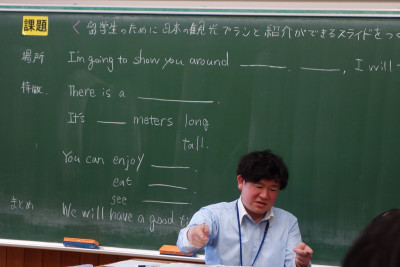 課題 < 留学生のために日本の観光プランと紹介ができるスライドをつく
場所 I'm going to show you around ______ . ______ , I will
特徴 There is a ______
It's ___ meters long
tall.
You can enjoy ______
eat ______
see ______
まとめ We will have a good ti